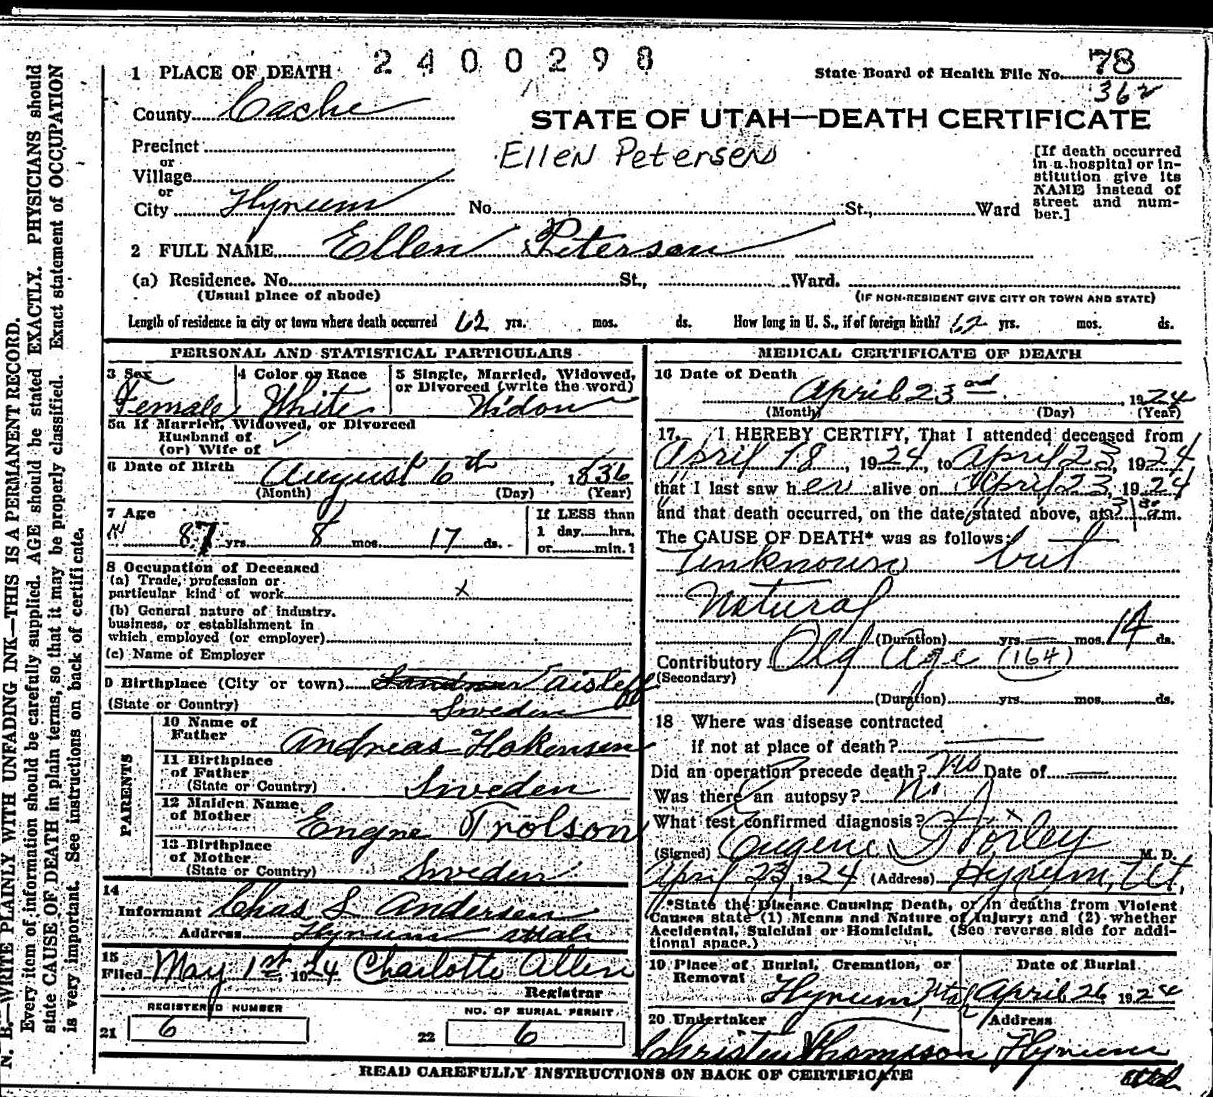 2400298
1 PLACE OF DEATH
State Board of Health File No. 78
362
County Cache
STATE OF UTAH—DEATH CERTIFICATE
Ellen Petersen
Precinct
or
Village
or
City Hyrum No. St., Ward
[If death occurred
in a hospital or in-
stitution give its
NAME instead of
street and num-
ber.]
2 FULL NAME Ellen Peterson
(a) Residence. No. St., Ward.
(Usual place of abode) (IF NON-RESIDENT GIVE CITY OR TOWN AND STATE)
Length of residence in city or town where death occurred 62 yrs. mos. ds. How long in U. S., if of foreign birth? 62 yrs. mos. ds.
PERSONAL AND STATISTICAL PARTICULARS
3 Sex
Female
4 Color or Race
White
5 Single, Married, Widowed,
or Divorced (write the word)
Widow
5a If Married, Widowed, or Divorced
Husband of
(or) Wife of
6 Date of Birth August 6th, 1836
(Month) (Day) (Year)
7 Age
87 yrs. 8 mos. 17 ds.
If LESS than
1 day hrs.
or min.?
8 Occupation of Deceased
(a) Trade, profession or
particular kind of work x
(b) General nature of industry.
business, or establishment in
which employed (or employer)
(c) Name of Employer
9 Birthplace (City or town)
(State or Country) Sweden
PARENTS
10 Name of
Father Andreas Hokensen
11 Birthplace
of Father
(State or Country) Sweden
12 Maiden Name
of Mother Engne Trolson
13 Birthplace
of Mother
(State or Country) Sweden
14
Informant Chas S Andersen
Address Hyrum Utah
15
Filed May 1st 1924 Charlotte Allen
Registrar
REGISTERED NUMBER
21 6
NO. OF BURIAL PERMIT
22 6
MEDICAL CERTIFICATE OF DEATH
16 Date of Death
April 23rd, 1924
(Month) (Day) (Year)
17 I HEREBY CERTIFY, That I attended deceased from
April 18, 1924, to April 23, 1924
that I last saw her alive on April 23, 1924
and that death occurred, on the date stated above, at a.m.
The CAUSE OF DEATH* was as follows:
Unknown but
Natural
(Duration) yrs. mos. 14 ds.
Contributory Old Age (164)
(Secondary)
(Duration) yrs. mos. ds.
18 Where was disease contracted
if not at place of death?
Did an operation precede death? No Date of
Was there an autopsy? No
What test confirmed diagnosis?
(Signed) Eugene Worley M. D.
April 23, 1924 (Address) Hyrum, Ut.
*State the Disease Causing Death, or in deaths from Violent
Causes state (1) Means and Nature of Injury; and (2) whether
Accidental, Suicidal or Homicidal. (See reverse side for addi-
tional space.)
19 Place of Burial, Cremation, or
Removal
Hyrum, Utah
Date of Burial
April 26 1924
20 Undertaker
Christen Thompson
Address
Hyrum
Utah
READ CAREFULLY INSTRUCTIONS ON BACK OF CERTIFICATE
N. B.—WRITE PLAINLY WITH UNFADING INK—THIS IS A PERMANENT RECORD.
Every item of information should be carefully supplied. AGE should be stated EXACTLY. PHYSICIANS should
state CAUSE OF DEATH in plain terms, so that it may be properly classified. Exact statement of OCCUPATION
is very important. See instructions on back of certificate.